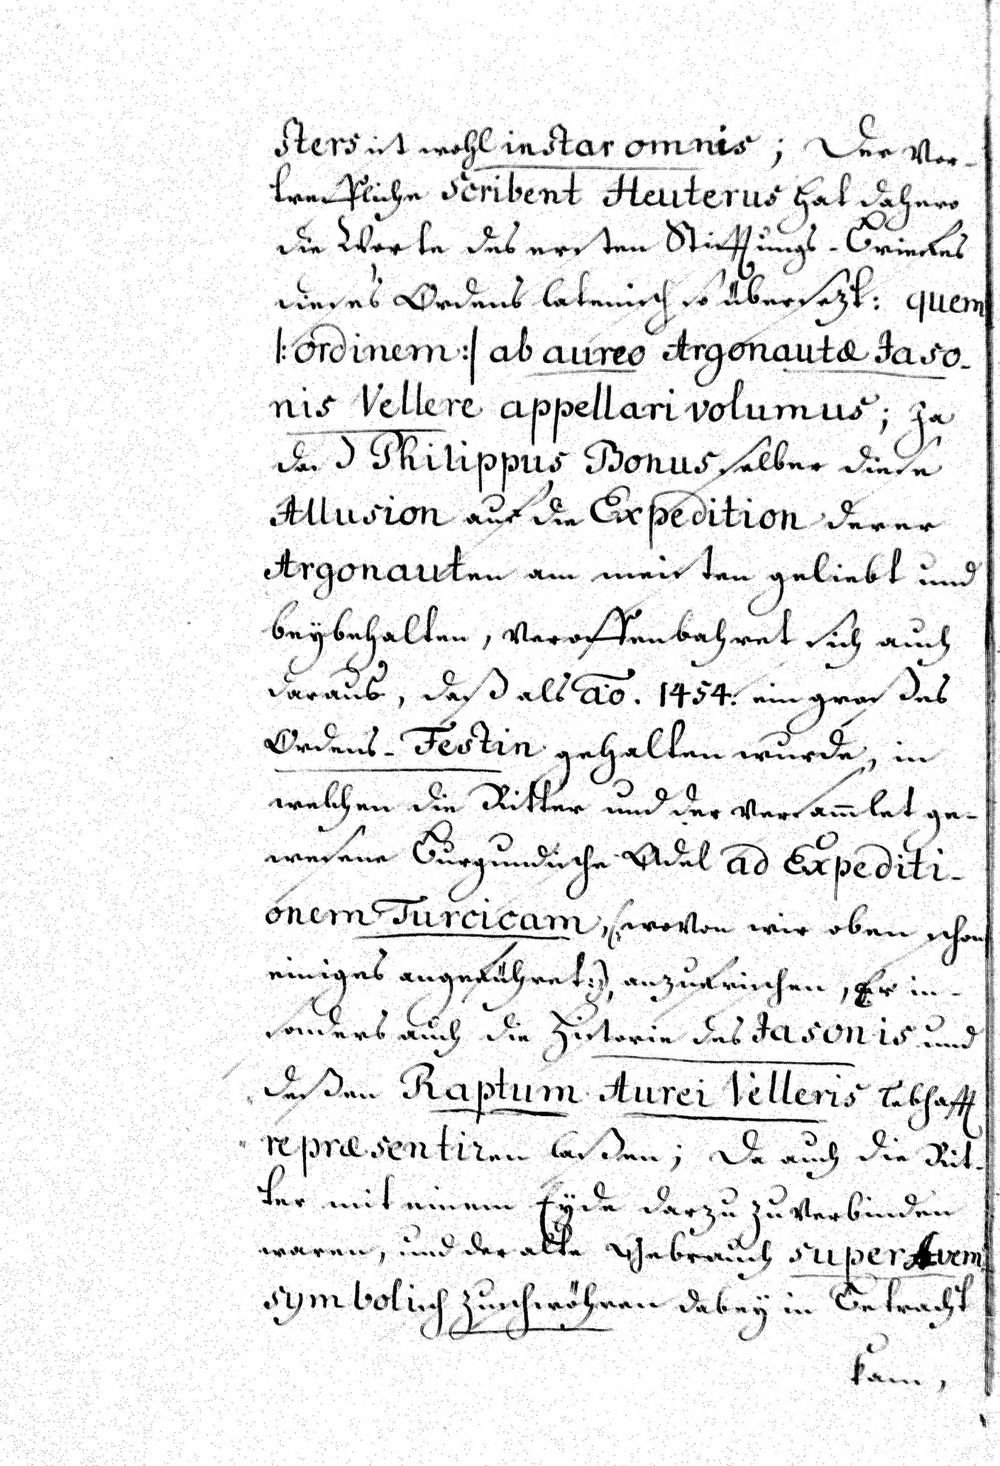 sters ist wohl instar omnis; Der Vor-
treffliche Scribent Heuterus hat dahero
die Worte des ersten Stifftungs-Briefes
dieses Ordens lateinisch so übersezt: quem
|: ordinem :| ab aureo Argonautæ Iaso-
nis Vellere appellari volumus; Ja
daß Philippus Bonus selber diese
Allusion auf die Expedition derer
Argonauten am meisten geliebt und
beybehalten, veroffenbahret sich auch
daraus, daß als aõ. 1454. ein großes
Ordens-Festin gehalten wurde, in
welchen die Ritter und der versam̄let ge-
wesene Burgundische Adel ad Expediti-
onem Turcicam, (: wovon wir oben schon
einiges angeführet :), anzufrischen, Er in-
sonders auch die Historie des Iasonis und
deßen Raptum Aurei Velleris lebhafft
repræsentiren laßen; Da auch die Rit-
ter mit einem Eyde darzu zu verbinden
waren, und der alte Gebrauch super Avem
symbolisch zuschwöhren dabey in Betracht
kam,